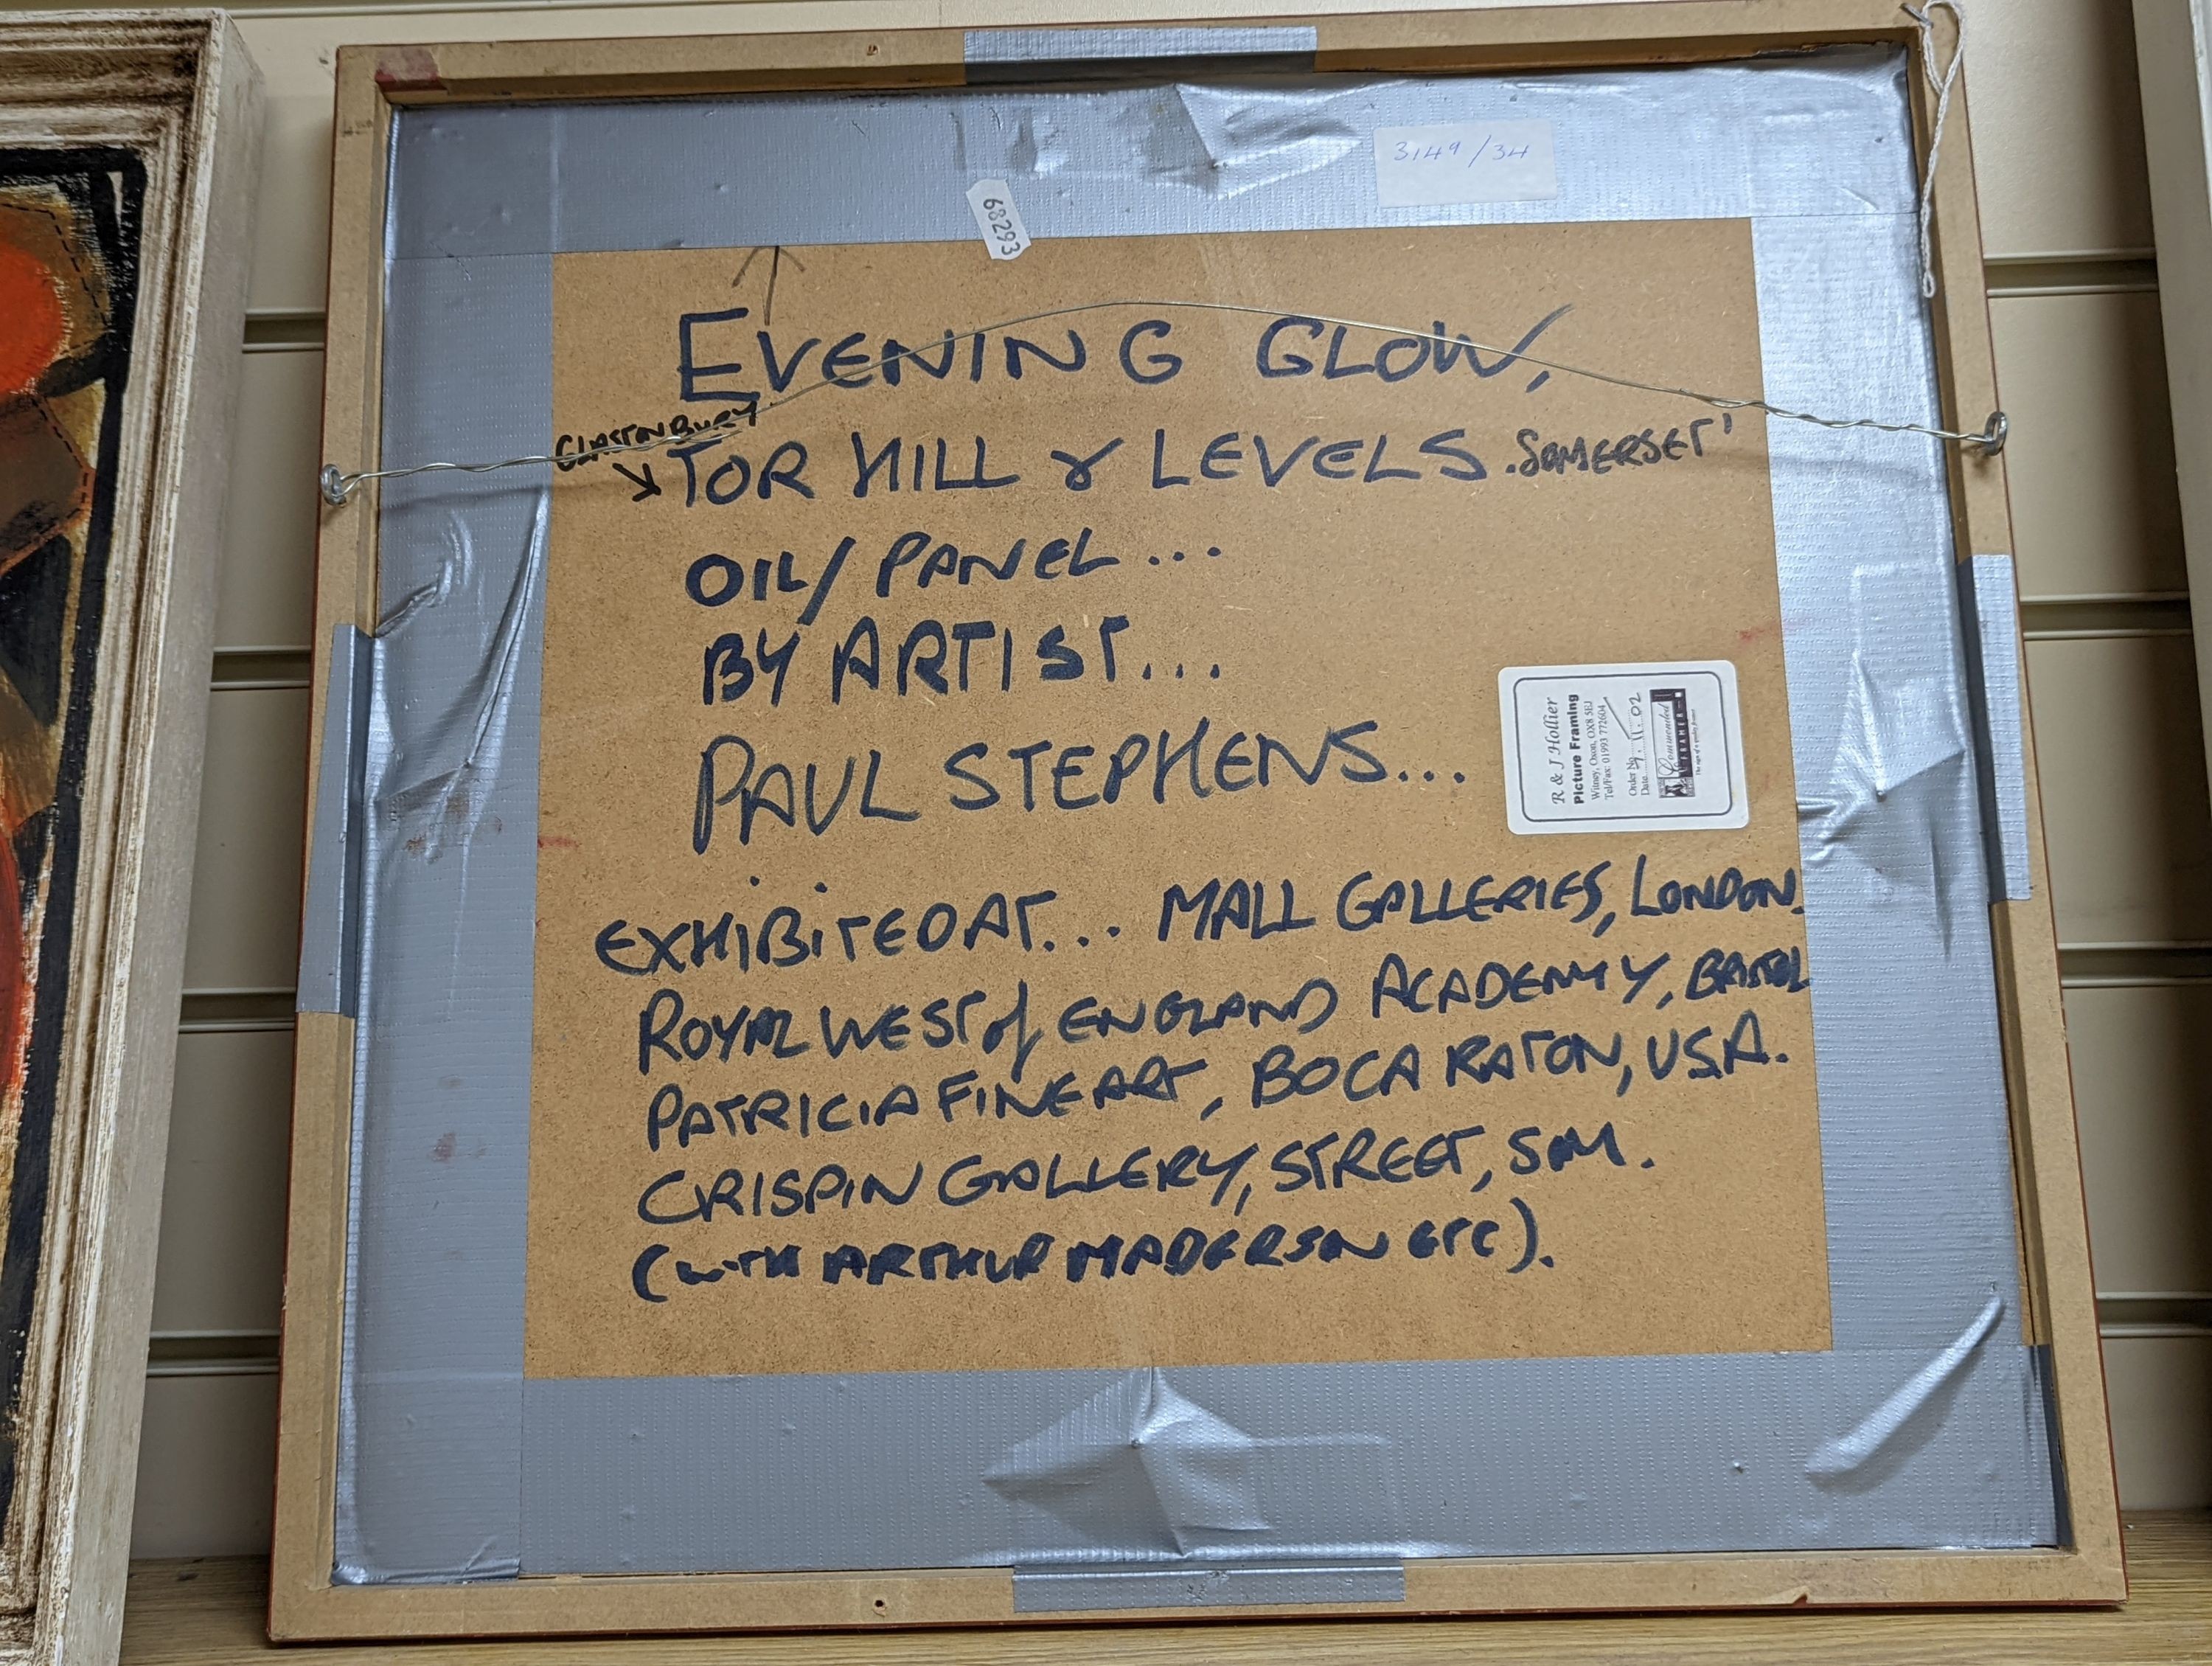 3149/34
68293
EVENING GLOW,
GLASTONBURY
TOR HILL & LEVELS. SOMERSET'
OIL/PANEL...
BY ARTIST...
PAUL STEPHENS...
R & J Hollier
Picture Framing
Witney, Oxon, OX8 5EJ
Tel/Fax: 01993 772604
Order No.
Date 11.02
Commended
FRAMER
EXHIBITED AT... MALL GALLERIES, LONDON.
ROYAL WEST of ENGLAND ACADEMY, BRISTOL
PATRICIA FINE ART, BOCA RATON, U.S.A.
CRISPIN GALLERY, STREET, SOM.
(WITH ARTHUR MADERSON ETC).